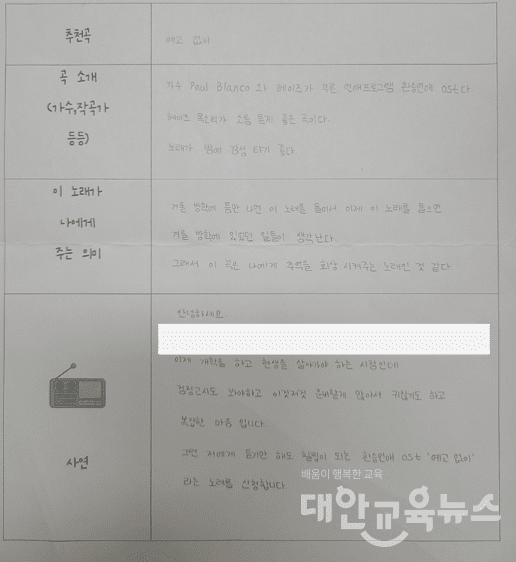 추천곡
예고 없이
곡 소개
(가수,작곡가
등등)
가수 Paul Blanco 와 헤이즈가 부른 연애프로그램 환승연애 ost다.
헤이즈 목소리가 소름 돋게 좋은 곡이다.
노래가 밤에 감성 타기 좋다.
이 노래가
나에게
주는 의미
겨울 방학에 틈만 나면 이 노래를 들어서 이제 이 노래를 들으면
겨울 방학에 있었던 일들이 생각난다.
그래서 이 곡은 나에게 추억을 회상 시켜주는 노래인 것 같다
사연
안녕하세요.
이제 개학을 하고 현생을 살아가야 하는 시점인데
검정고시도 봐야하고 이것저것 준비할게 많아서 귀찮기도 하고
복잡한 마음 입니다.
그런 저에게 듣기만 해도 힐링이 되는 환승연애 ost '예고 없이'
라는 노래를 신청합니다.
배움이 행복한 교육
대안교육뉴스